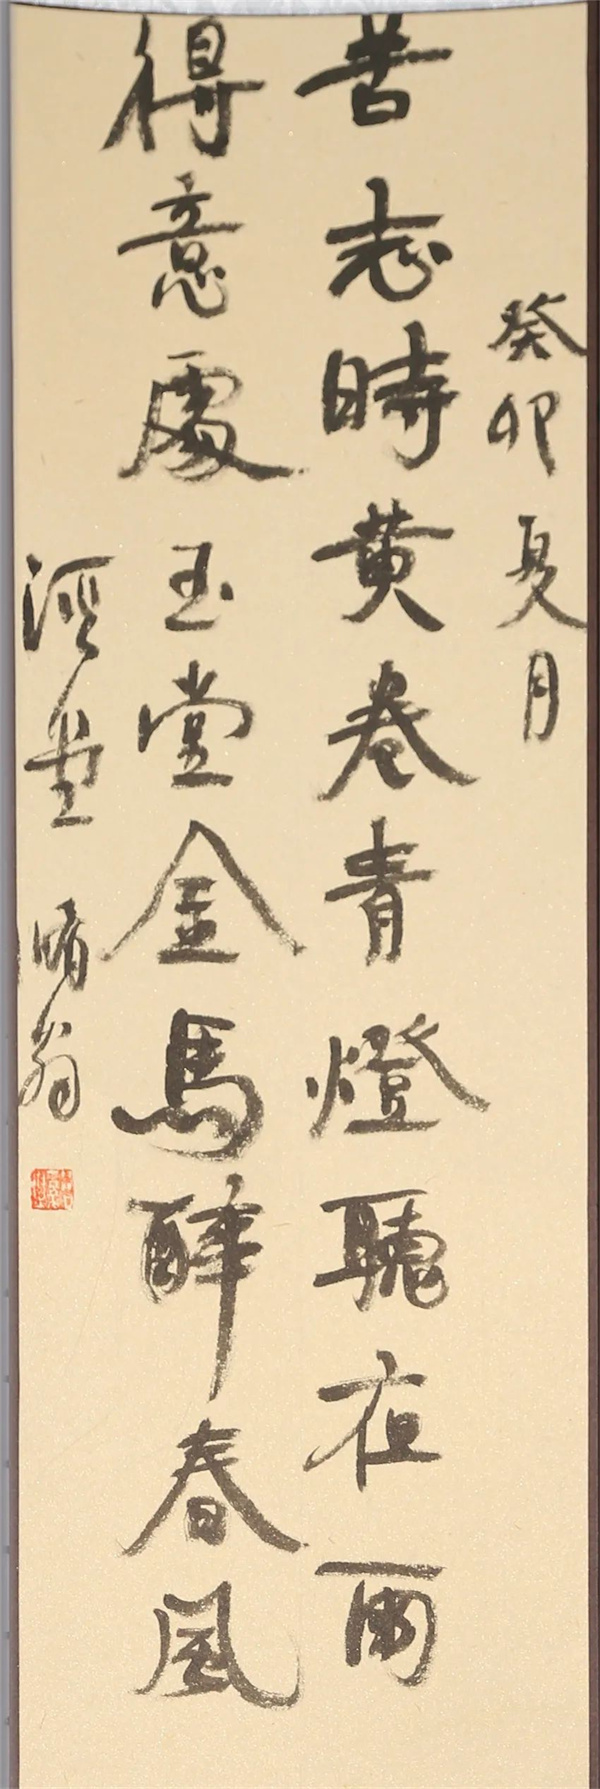 癸卯夏月
苦志時黃卷青燈聽夜雨
得意處玉堂金馬醉春風
翁